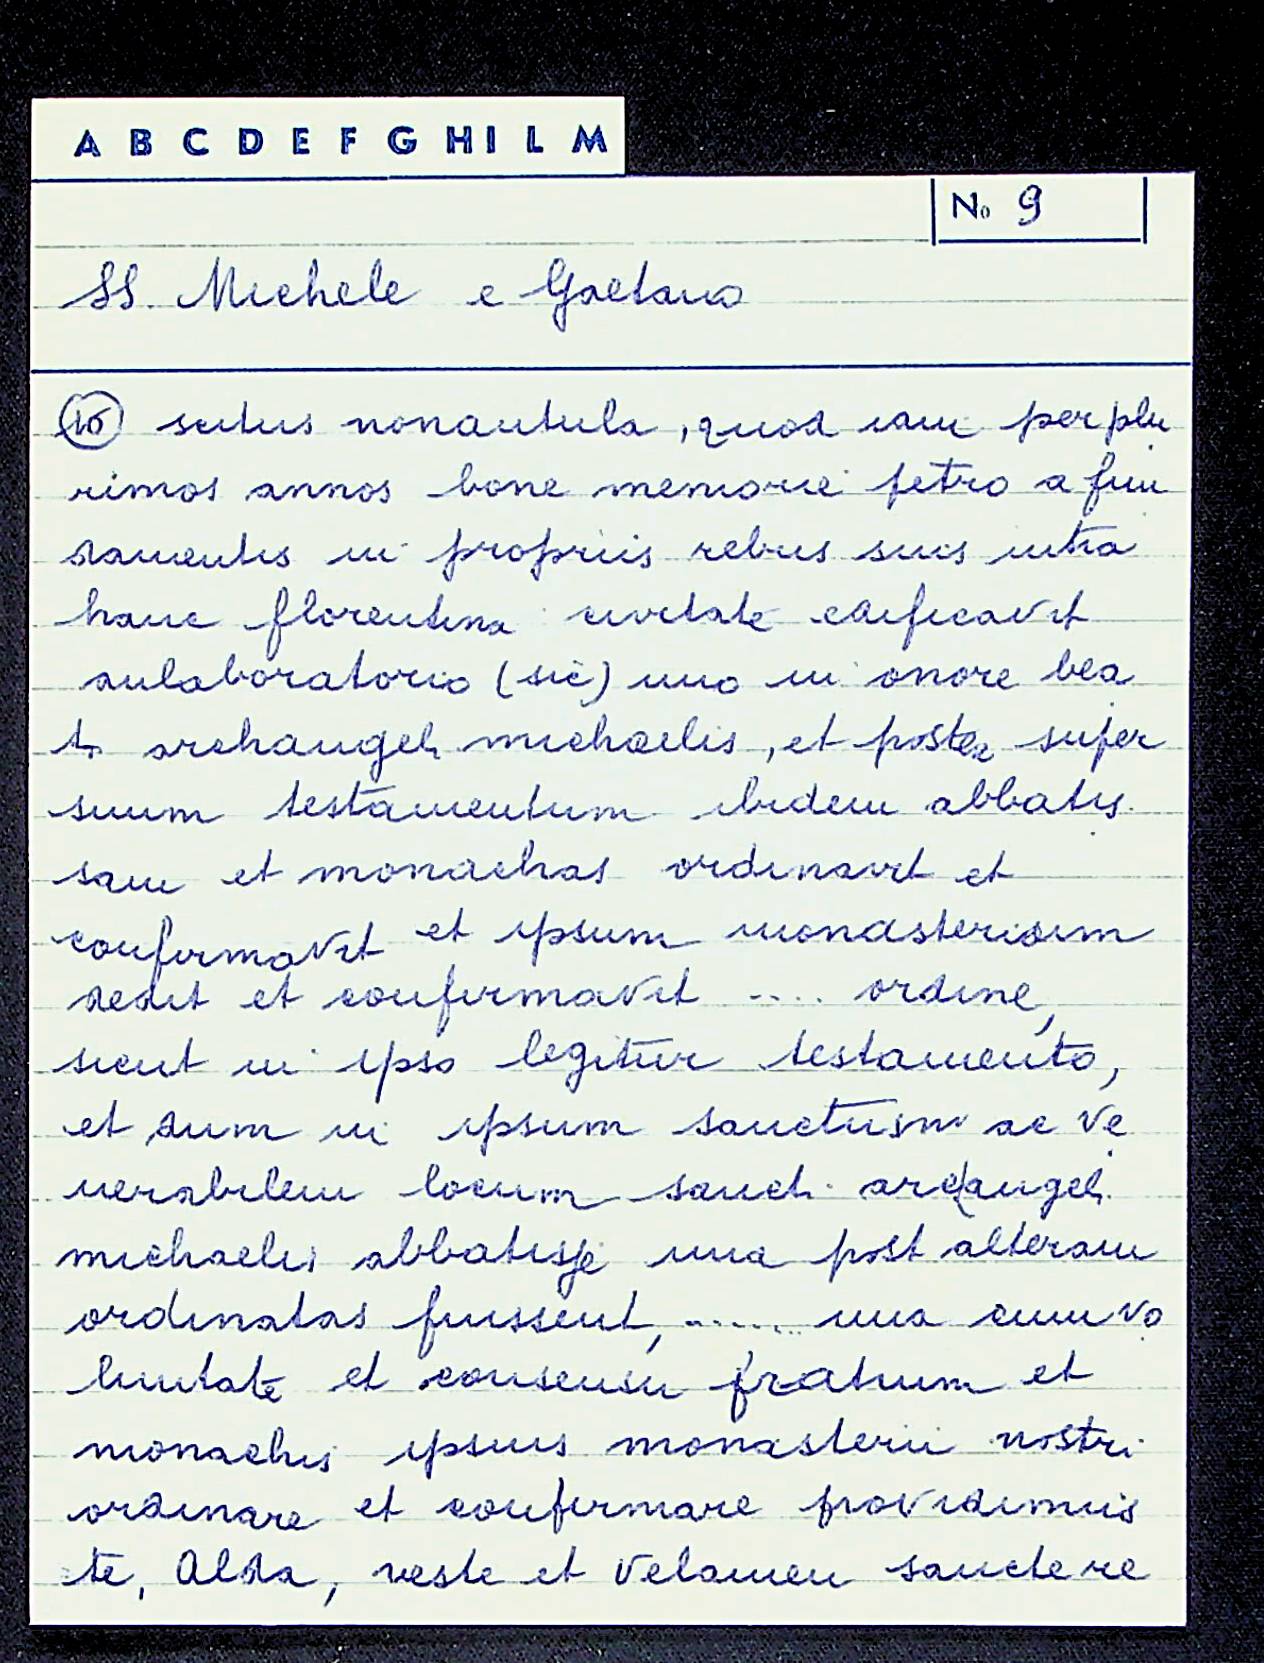 A B C D E F G H I L M
No 9
SS. Michele e Gaetano
situs nonantula, quod iam per plu
rimos annos bone memorie petro a fun
damentis in propriis rebus suis intra
hanc florentina civitate edificavit
aulaboratorio (sic) uno in onore bea
ti archangeli michaelis, et postea super
suum testamentum ibidem abbatis
sam et monachas ordinavit et
confirmavit et ipsum monasterium
dedit et confirmavit .... ordine,
sicut in ipso legitur testamento,
et dum in ipsum sanctusm ac ve
nerabilem locum sancti archangeli
michaelis abbatisse una post alteram
ordinatas fuissent, ...... una cum vo
luntate et consensu fratrum et
monachis ipsius monasterii nostri
ordinare et confirmare providimus
te, Alda, veste et velamen sancte re